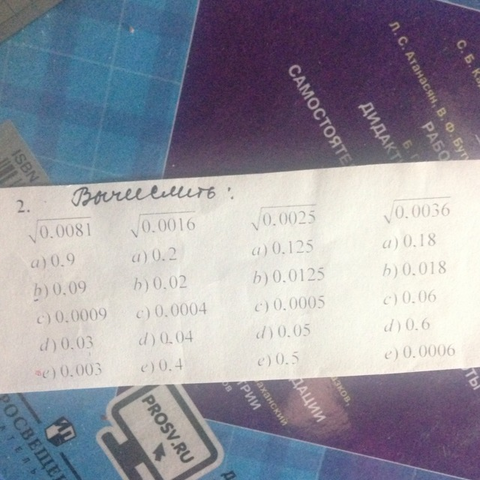 С. Б.
Л. С. Атанасян, В. Ф.
РАБО
ДИДАКТ
САМОСТОЯТЕ
ISBN
2. Вычислить:
√0.0081 √0.0016 √0.0025 √0.0036
a) 0.9 a) 0.2 a) 0.125 a) 0.18
b) 0.09 b) 0.02 b) 0.0125 b) 0.018
c) 0.0009 c) 0.0004 c) 0.0005 c) 0.06
d) 0.03 d) 0.04 d) 0.05 d) 0.6
e) 0.003 e) 0.4 e) 0.5 e) 0.0006
РОСВЕЩЕН
PROSV.RU